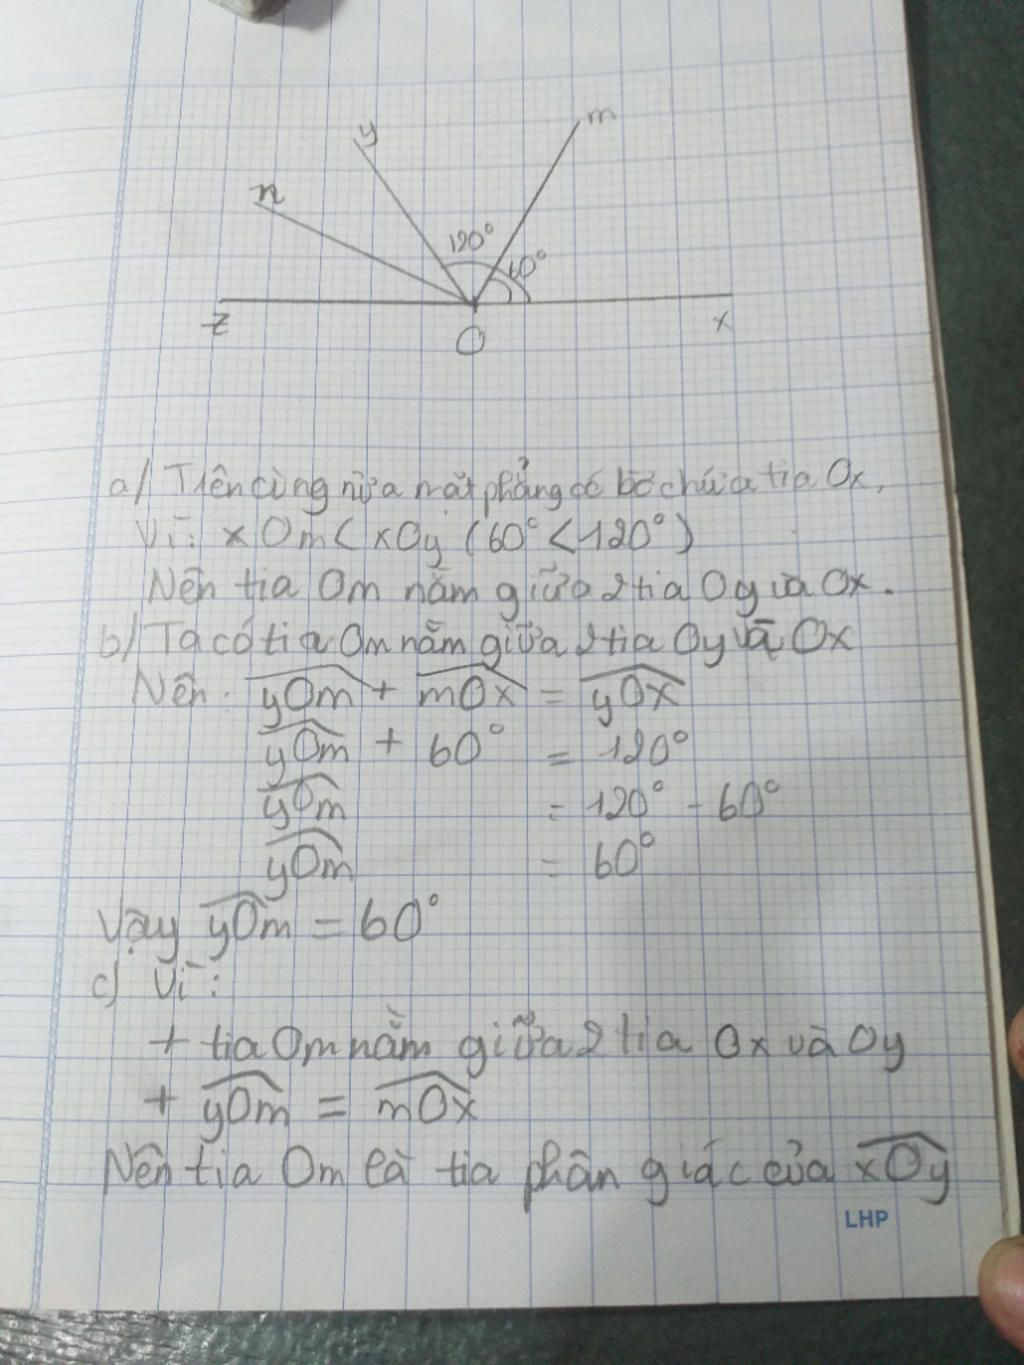 y
m
n
120°
60°
z
O
x
a/ Trên cùng nửa mặt phẳng có bờ chứa tia Ox,
Vì: xOm < xOy (60° < 120°)
Nên tia Om nằm giữa 2 tia Oy và Ox.
b/ Ta có tia Om nằm giữa 2 tia Oy và Ox
Nên: yOm + mOx = yOx
yOm + 60° = 120°
yOm = 120° - 60°
yOm = 60°
Vậy yOm = 60°
c) Vì:
+ tia Om nằm giữa 2 tia Ox và Oy
+ yOm = mOx
Nên tia Om là tia phân giác của xOy
LHP